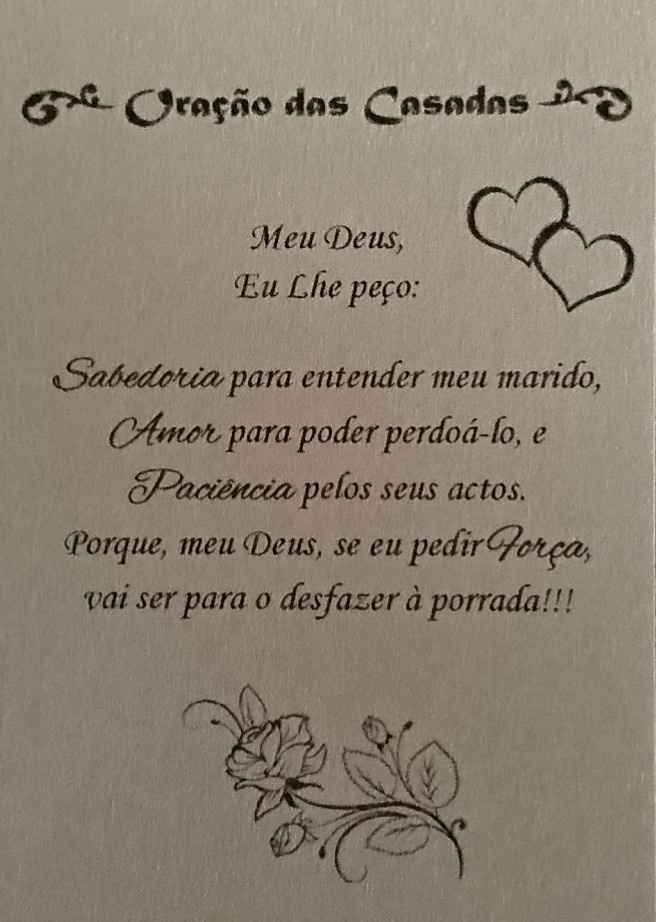 Oração das Casadas
Meu Deus,
Eu Lhe peço:
Sabedoria para entender meu marido,
Amor para poder perdoá-lo, e
Paciência pelos seus actos.
Porque, meu Deus, se eu pedir Força,
vai ser para o desfazer à porrada!!!